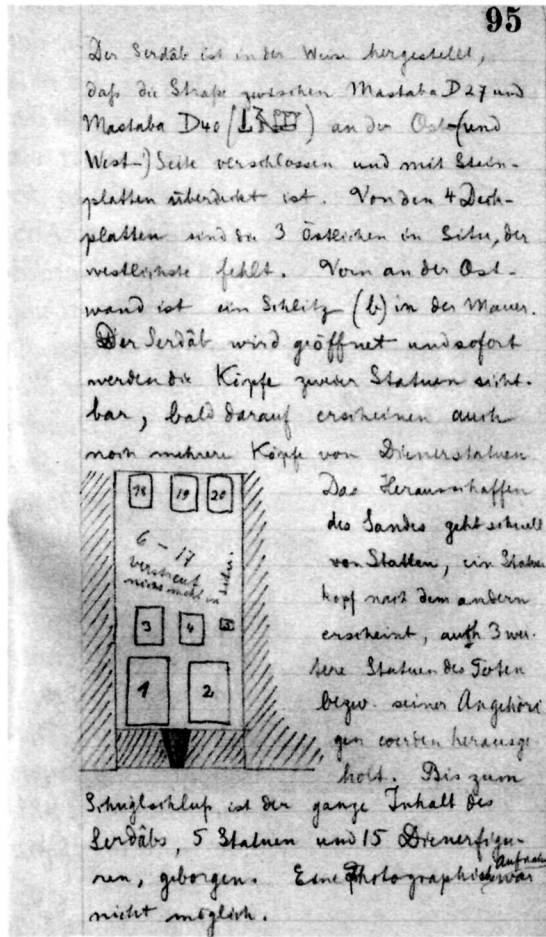 95
Der Serdâb ist in der Weise hergestellt,
daß die Straße zwischen Mastaba D27 und
Mastaba D40 ( ) an der Ost-(und
West-)Seite verschlossen und mit Stein-
platten überdeckt ist. Von den 4 Deck-
platten sind die 3 östlichen in Situ, der
westlichste fehlt. Vorn an der Ost-
wand ist ein Schlitz (b) in der Mauer.
Der Serdâb wird geöffnet und sofort
werden die Köpfe zweier Statuen sicht-
bar, bald darauf erscheinen auch
noch mehrere Köpfe von Dienerstatuen
Das Herausschaffen
des Sandes geht schnell
von Statten, ein Statuen
kopf nach dem andern
erscheint, auch 3 wei-
tere Statuen des Toten
bezw. seiner Angehöri
gen werden herausge
holt. Bis zum
18 19 20
6 – 17
verstreut
nicht mehr in situ.
3 4 5
1 2
Schluß ist der ganze Inhalt des
Serdâbs, 5 Statuen und 15 Dienerfigu-
ren, geborgen. Eine Photographische Aufnahme war
nicht möglich.